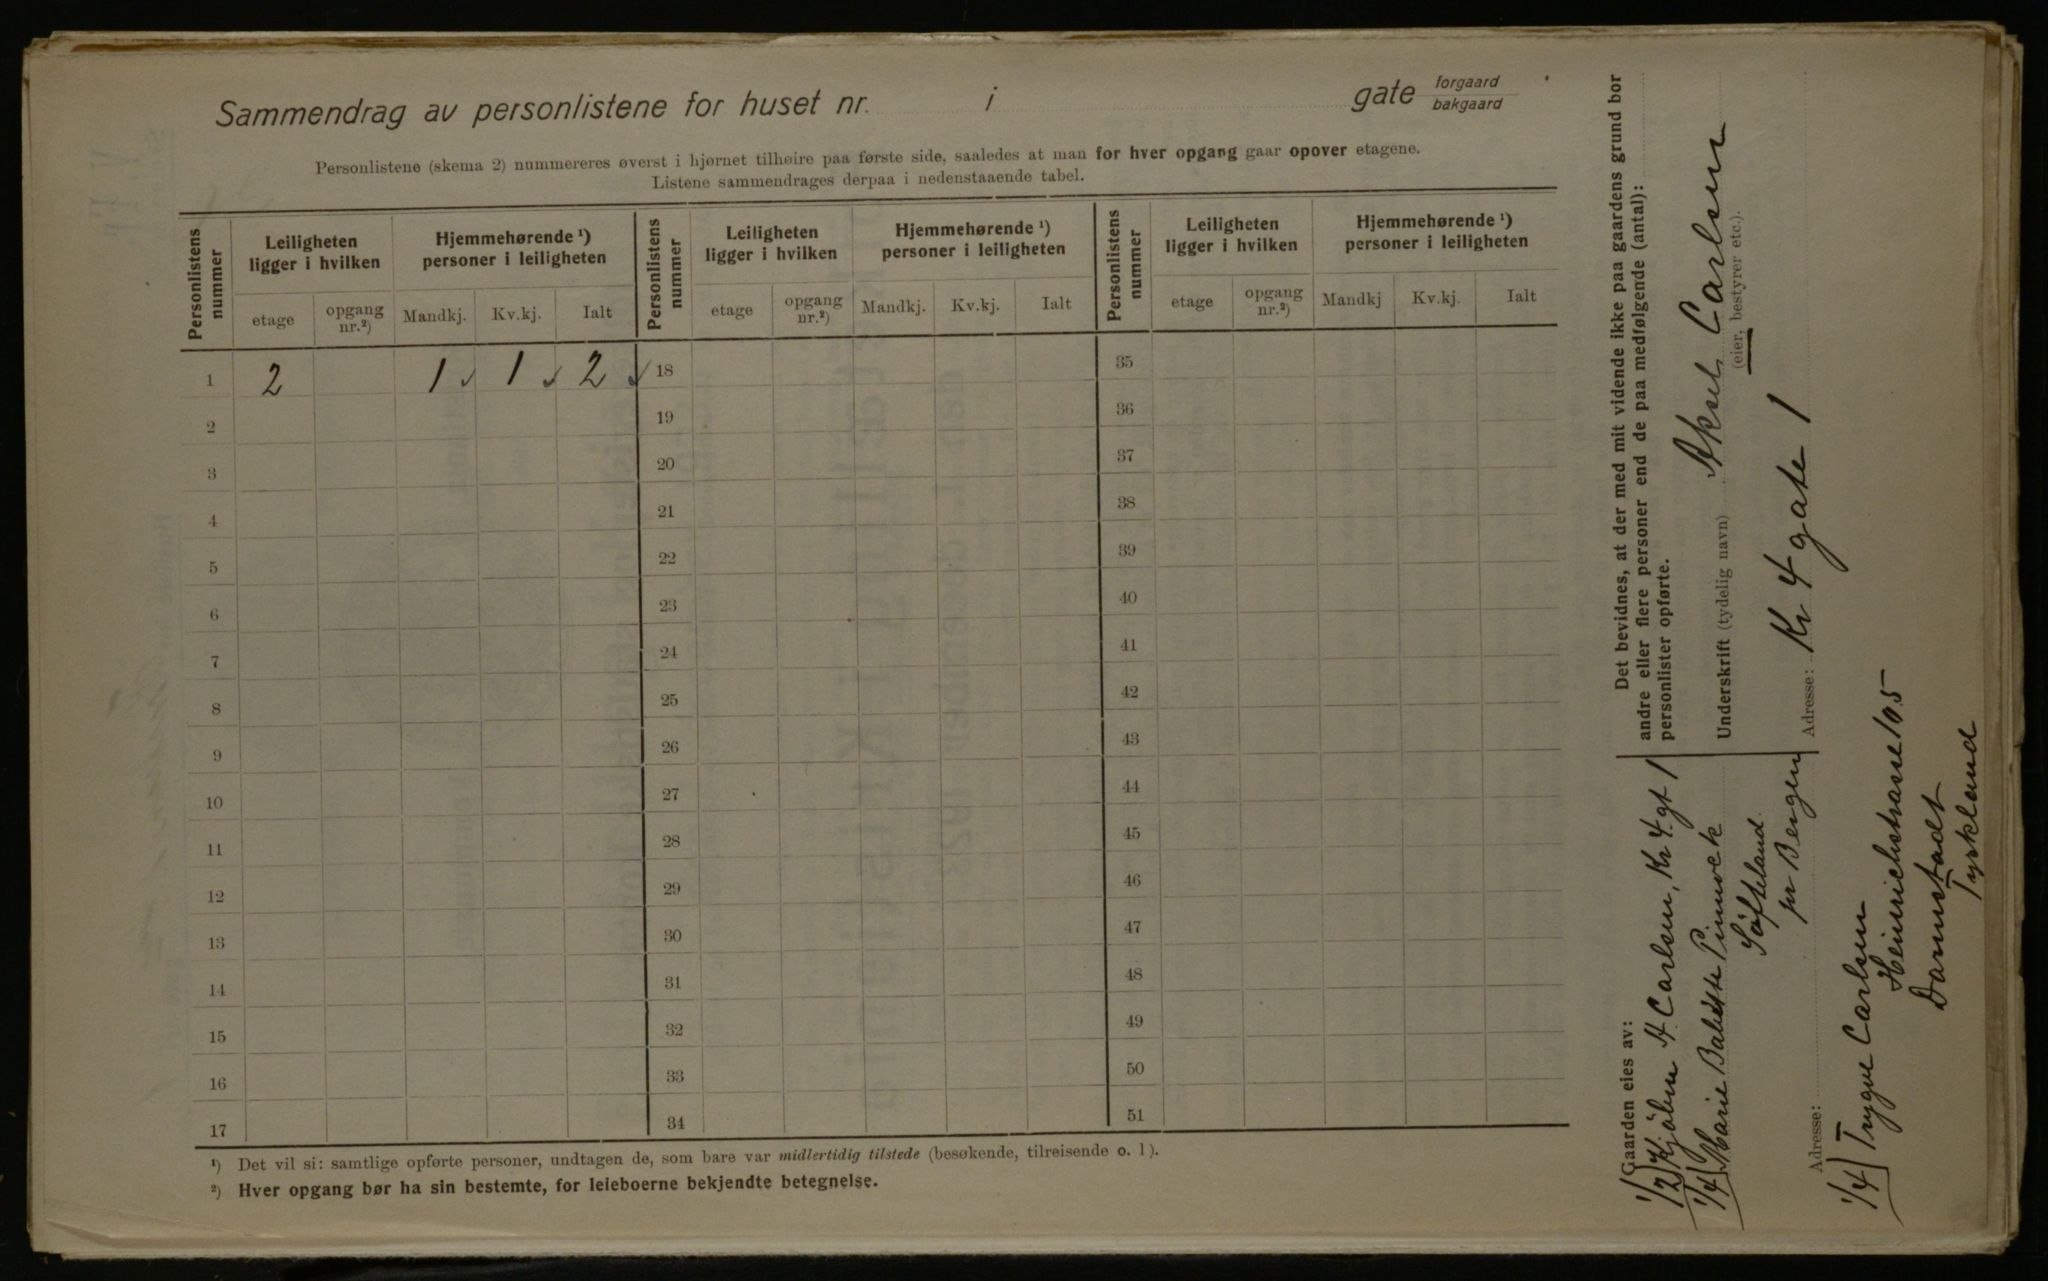 Sammendrag av personlistene for huset nr. i gate forgaard bakgaard
Personlistene (skema 2) nummereres øverst i hjørnet tilhøire paa første side, saaledes at man for hver opgang gaar opover etagene.
Listene sammendrages derpaa i nedenstaaende tabel.
Personlistens nummer Leiligheten ligger i hvilken Hjemmehørende ¹) personer i leiligheten Personlistens nummer Leiligheten ligger i hvilken Hjemmehørende ¹) personer i leiligheten Personlistens nummer Leiligheten ligger i hvilken Hjemmehørende ¹) personer i leiligheten
etage opgang nr.²) Mandkj. Kv.kj. Ialt etage opgang nr.²) Mandkj. Kv.kj. Ialt etage opgang nr.²) Mandkj Kv.kj. Ialt
1 2 1 1 2 18 35
2 19 36
3 20 37
4 21 38
5 22 39
6 23 40
7 24 41
8 25 42
9 26 43
10 27 44
11 28 45
12 29 46
13 30 47
14 31 48
15 32 49
16 33 50
17 34 51
¹) Det vil si: samtlige opførte personer, undtagen de, som bare var midlertidig tilstede (besøkende, tilreisende o. l).
²) Hver opgang bør ha sin bestemte, for leieboerne bekjendte betegnelse.
Det bevidnes, at der med mit vidende ikke paa gaardens grund bor
andre eller flere personer end de paa medfølgende (antal):
personlister opførte.
Underskrift (tydelig navn) Aksel Carlsen
(eier, bestyrer etc.).
Adresse: Kr 4 gate 1
Gaarden eies av:
1/2 Kjøbm A Carlsen, Kr 4. gt 1
1/4 Marie Babette
Søfteland
pr Bergen
Adresse:
1/4 Trygve Carlsen
Heinrichstrasse 105
Darmstadt
Tyskland